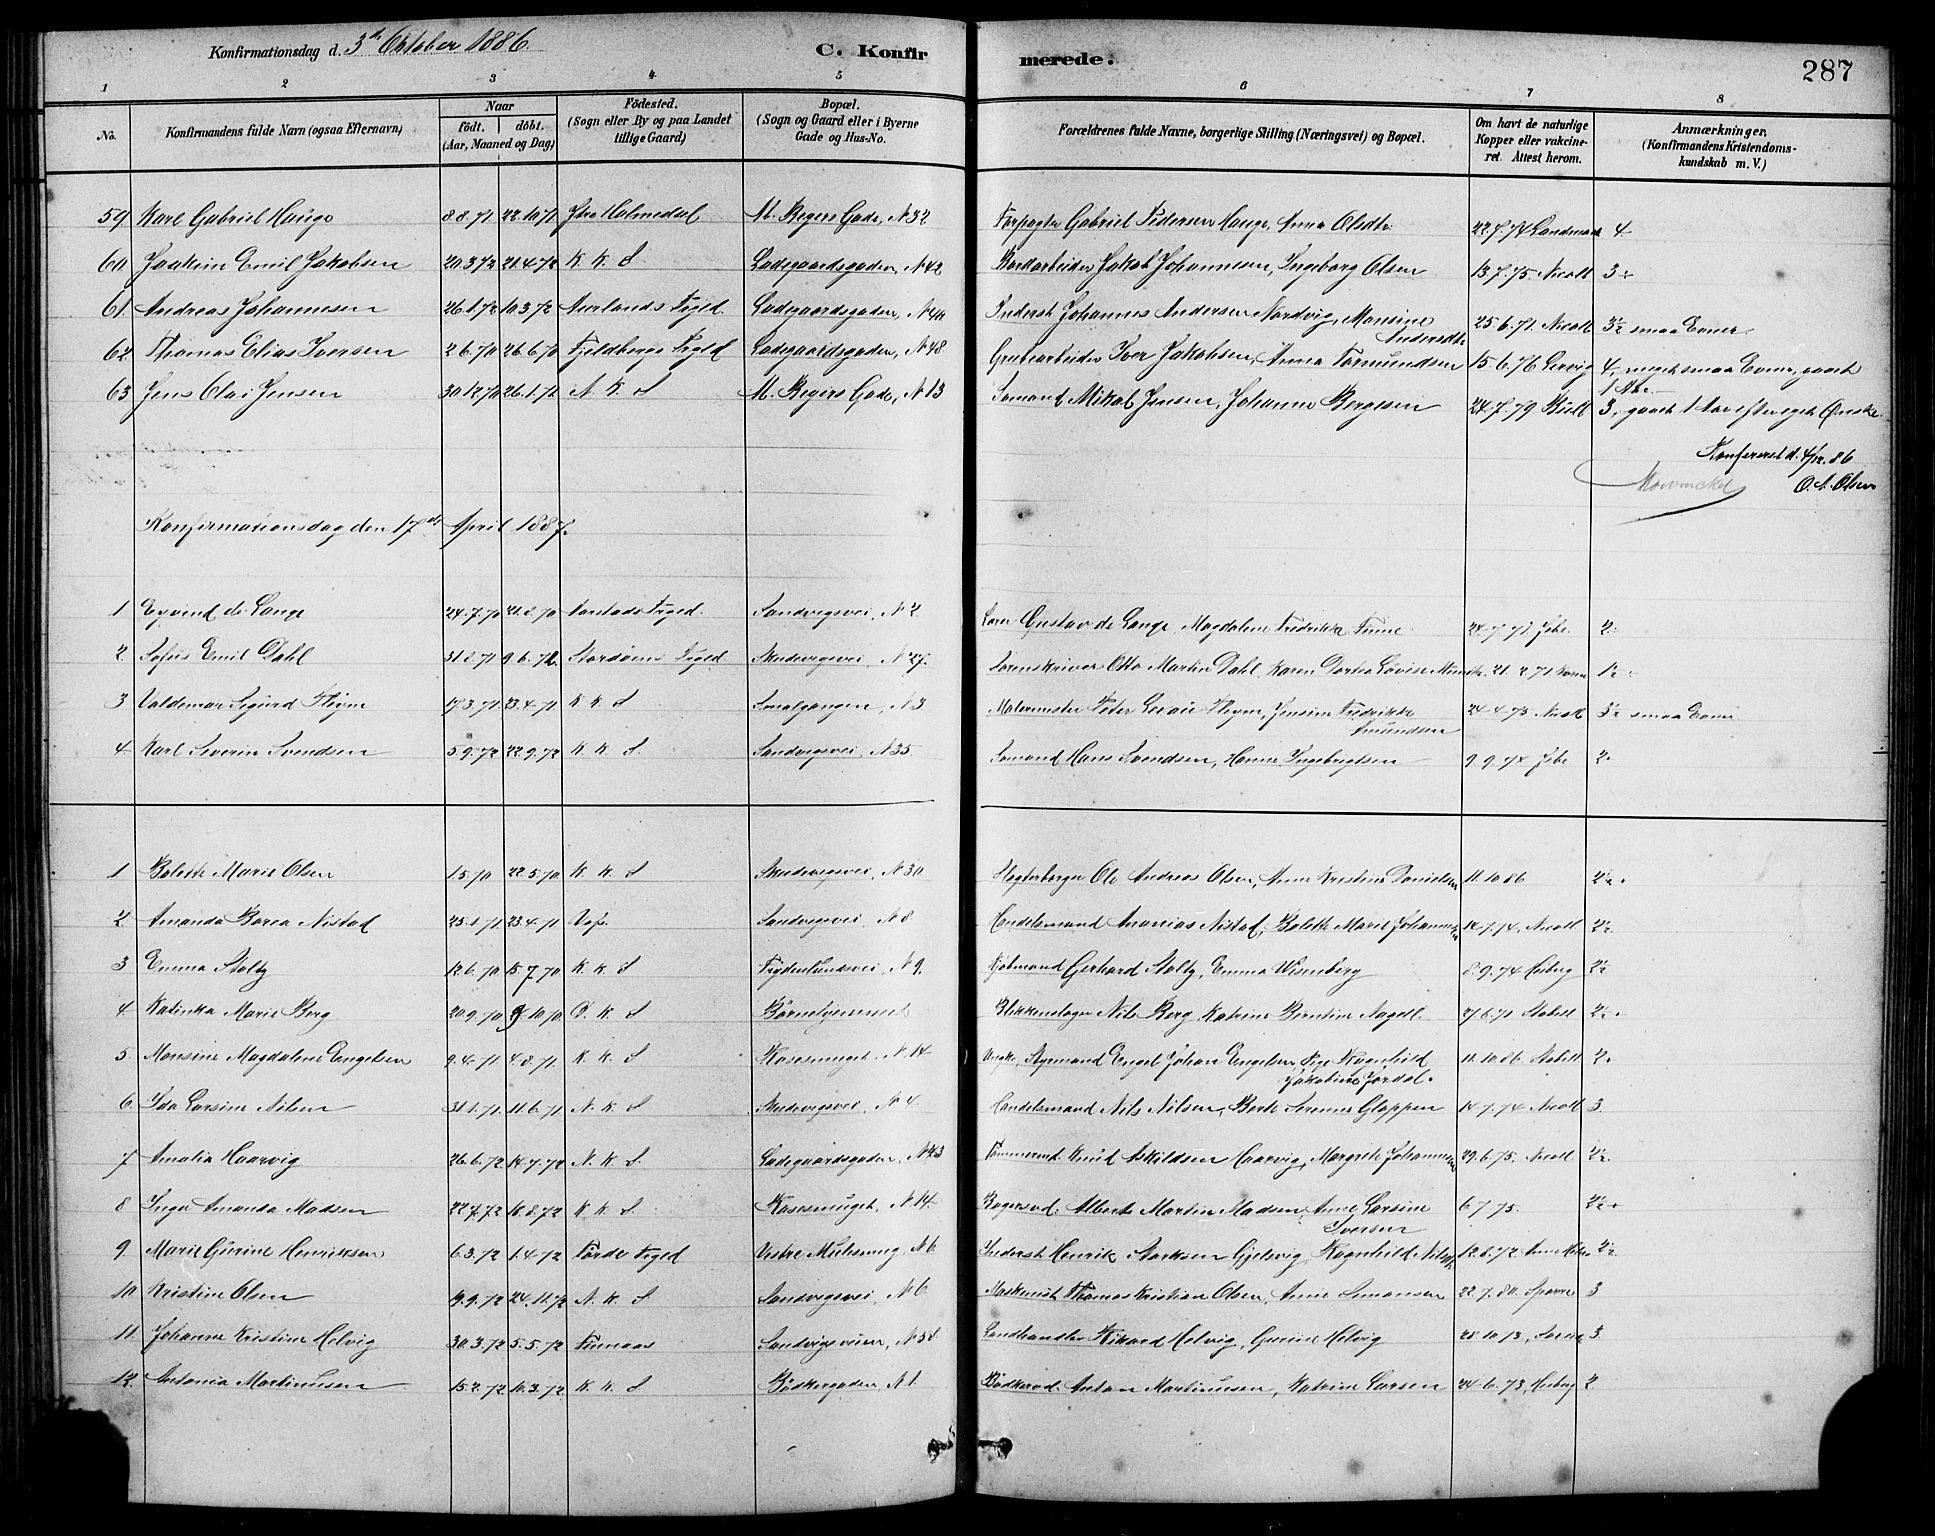 Konfirmationsdag d. 3die Oktober 1886.
C. Konfirmerede.
287
1 2 3 4 5 6 7 8
No.
Konfirmandens fulde Navn (ogsaa Efternavn)
Naar
födt. döbt.
(Aar, Maaned og Dag)
Födested.
(Sogn eller By og paa Landet
tillige Gaard)
Bopæl.
(Sogn og Gaard eller i Byerne
Gade og Hus-No.
Forældrenes fulde Navne, borgerlige Stilling (Næringsvei) og Bopæl.
Om havt de naturlige
Kopper eller vakcine-
ret. Attest herom.
Anmærkninger.
(Konfirmandens Kristendoms-
kundskab m. V.)
59 Karl Gabriel Hauge 8.8.71 22.10.71 Ytre Holmedal M. Kegers Gade, N 32 Forpagter Gabriel Pedersen Hauge, Anna Olsdtr. 22.7.74 Landmark 4
60 Joakim Emil Jakobsen 20.3.72 21.4.72 K. K. S Ladegaardsgaden, N 42 Jakob Johannesen, Ingeborg Olsen 13.7.75 Nicoll 3
61 Andreas Johannesen 26.1.72 10.3.72 Aurlands Pgld. Ladegaardsgaden, N Inderst Johannes Andersen Nordvig, Monsine
Andersdtr 25.6.71 Nicoll 3½ smaa Evner
62 Thomas Elias Iversen 2.6.70 26.6.70 Fjeldbergs Pgld Ladegaardsgaden, N 48 Grubearbeider Iver Jakobsen, Anna Tormundsen 15.6.76 Lervig 4, meget smaa Evner, gaaet
1 Aar
63 Jens Olai Jensen 30.12.70 26.1.72 N. K. S M. Kegers Gade, N 13 Sømand Mikal Jensen, Johanne Bergesen 24.7.79 Bull 3, gaaet 1 Aar efter eget Ønske.
Konfereret d. 4/12.86
O. A. Olsen
Konfirmationsdag den 17de April 1887.
1 Eyvind de Lange 24.7.70 21.8.70 Aarstads Pgld. Sandvigsvei, N 2 Gustav de Lange, Magdalene Fredrikke Finne 24.7.71 Jebe 2
2 Sofus Emil Dahl 31.8.71 9.6.72 Stordøens Pgld Skudevigsvei, N 27. Sorenskriver Otto Martin Dahl, Karen Dortea Lovise 21.2.71 1½
3 Valdemar Sigurd Thym 17.3.71 23.4.71 K K S Smalgangen, N 3 Malermester Peter Thym, Jensine Fredrikke
Amundsen 24.4.73 Nicoll 3½ smaa Evner
4 Karl Severin Svendsen 5.9.72 22.9.72 K. K S. Sandvigsvei, N 35 Sømand Hans Svendsen, Hanna Ingebrigtsen 9.9.74 Jebe 2.
1 Bolette Marie Olsen 1.5.70 22.5.70 K K S Skudevigsvei, N 30 Ole Andreas Olsen, Anne Kristine Danielsen 11.10.86 2½.
2 Amanda Borea Nistad 25.1.71 23.4.71 Sandvigsvei, N 8. Handelsmand Ananias Nistad, Bolette Marie Johannesen 14.7.74. Nicoll 2½
3 Emma Stoltz 12.6.70 15.7.70 K. K. S Frydenlundsvei, N 9. Kjøbmand Gerhard Stoltz, Emma Wesenberg 8.9.74 Heiberg 2½
4. Katinka Marie Berg 20.9.70 9.10.70 D. K. S Børnehjemmet Blikkenslager Nils Berg, Katrine Berntine Nagell 27.6.71 Stabell 2½.
5. Monsine Magdalene Engelsen 9.4.71 4.8.71. K. K. S Rosesmuget, N 14 Ungk., Styrmand Engel Johan Engelsen, Pige Ragnhild
Jakobine Jørdal. 11.10.86. Stabell 2.
6. Ida Larsine Nilsen 31.1.71. 11.6.71 N. K S Skudevigsvei, N 4. Handelsmand Nils Nilsen, Berte Serenna Gloppen 14.7.74 Nicoll 3.
7 Amalia Haarvig 26.6.72 14.7.72 N. K. S. Ladegaardsgaden, N 43 Tømmermd. Knud Askildsen Haarvig, Margrete Johannesen 29.6.75. Nicoll 2½
8 Inga Amanda Madsen 22.7.72 18.8.72 K. K S Rosesmuget, N 14. Bagersv. Albert Martin Madsen, Anne Larsine
Iversen 6.7.75. 2½.
9. Marie Gurine Henriksen 6.3.72 1.4.72 Førde Pgld Vestre Mulesmug, N 6 Inderst Henrik Gjelsvig, Ragnhild Nilsdtr 12.8.72 2½
10 Kristine Olsen 9.9.72 24.11.72 N. K. S Sandvigsvei, N 6. Maskinist Thomas Kristian Olsen, Anne Simonsen 22.7.80. Sparre 3
11. Johanne Kristine Helvig 30.3.72 5.5.72 Finnaas Sandvigsveien, N 58 Landhandler Rikard Helvig, Gurine Helvig 28.10.73. 3.
12. Antonia Martinusen 15.2.72 10.3.72 K. K. S Bødkergaden, N 1. Bødkersv. Anton Martinusen, Katrine Larsen 24.6.73, Heiberg 2